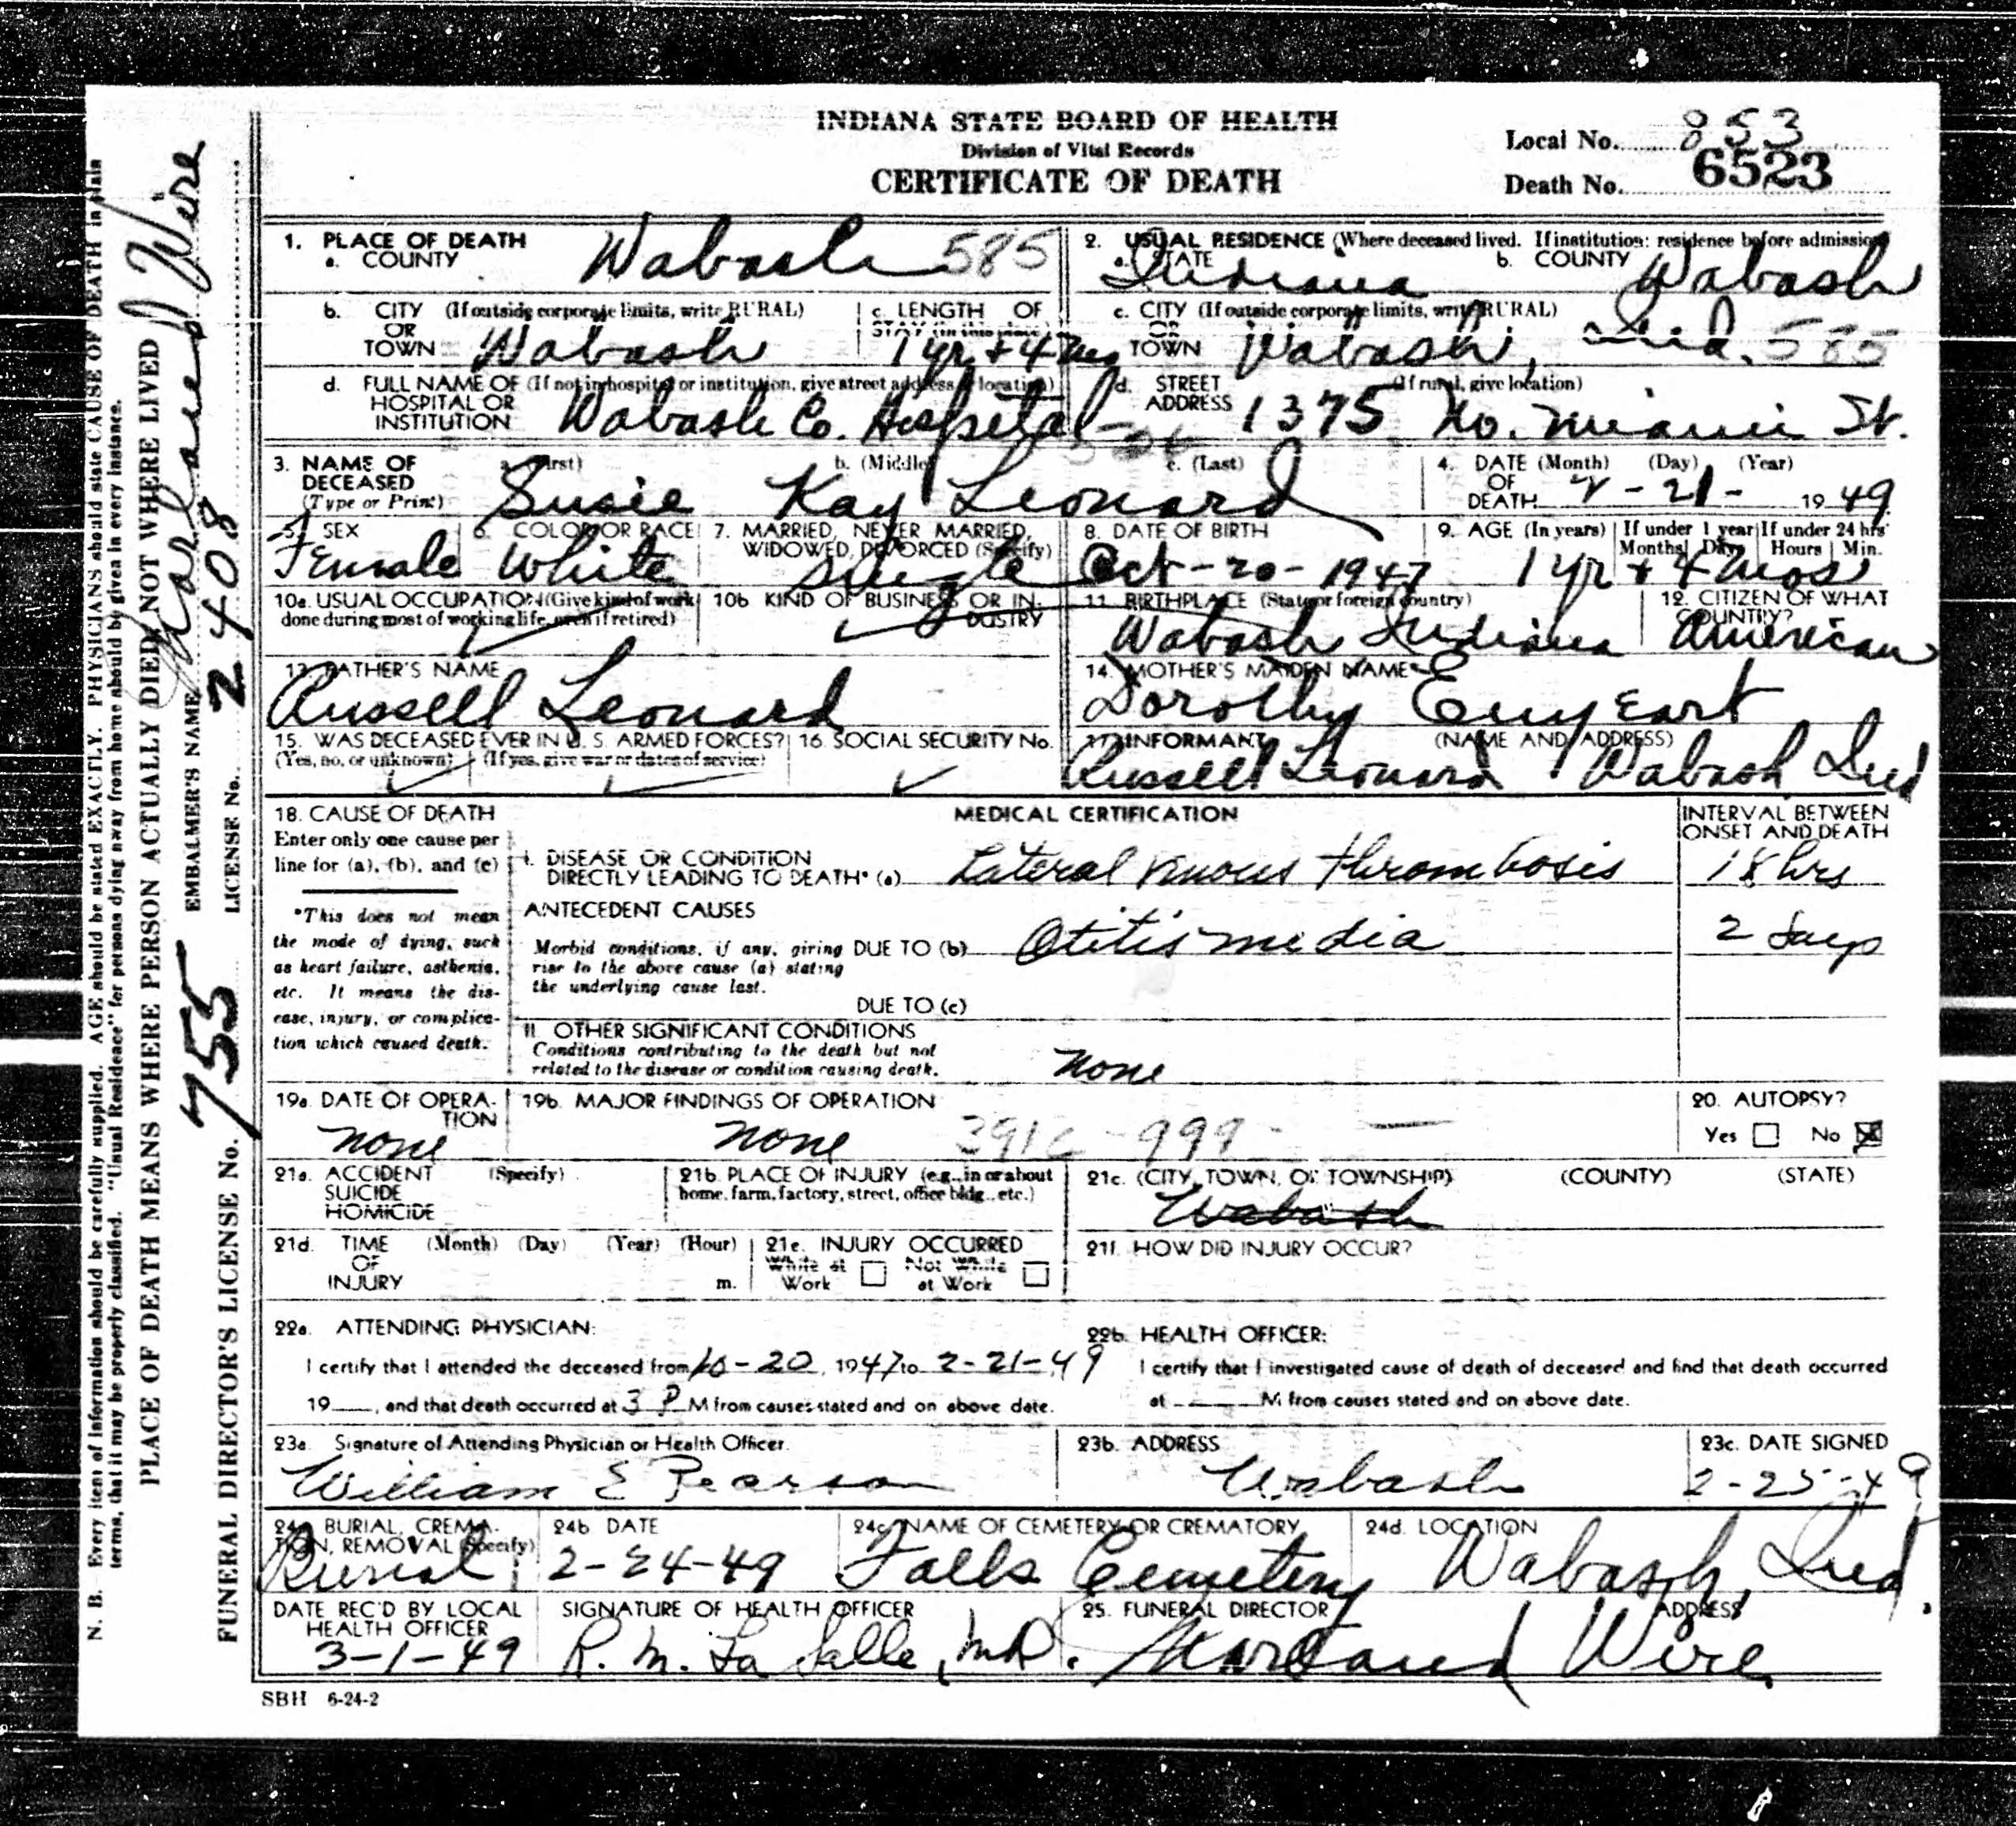 INDIANA STATE BOARD OF HEALTH
Division of Vital Records
CERTIFICATE OF DEATH
Local No. 853
Death No. 6523
1. PLACE OF DEATH
a. COUNTY Wabash 585
2. USUAL RESIDENCE (Where deceased lived. If institution: residence before admission)
a. STATE Indiana b. COUNTY Wabash
b. CITY (If outside corporate limits, write RURAL)
OR
TOWN Wabash
c. LENGTH OF
STAY (in this place)
1 yr + 4 mos
c. CITY (If outside corporate limits, write RURAL)
OR
TOWN Wabash, Ind. 585
d. FULL NAME OF (If not in hospital or institution, give street address or location)
HOSPITAL OR
INSTITUTION Wabash Co. Hospital
d. STREET (If rural, give location)
ADDRESS 1375 No. Miami St.
3. NAME OF
DECEASED
(Type or Print)
a. (First) b. (Middle) c. (Last)
Susie Kay Leonard
4. DATE (Month) (Day) (Year)
OF
DEATH 2-21- 1949
5. SEX
Female
6. COLOR OR RACE
White
7. MARRIED, NEVER MARRIED,
WIDOWED, DIVORCED (Specify)
Single
8. DATE OF BIRTH
Oct-20-1947
9. AGE (In years) If under 1 year If under 24 hrs
Months Days Hours Min.
1 yr + 4 mos
10a. USUAL OCCUPATION (Give kind of work
done during most of working life, even if retired)
10b KIND OF BUSINESS OR IN-
DUSTRY
11. BIRTHPLACE (State or foreign country)
Wabash Indiana
12. CITIZEN OF WHAT
COUNTRY?
American
13. FATHER'S NAME
Russell Leonard
14. MOTHER'S MAIDEN NAME
Dorothy Enyeart
15. WAS DECEASED EVER IN U. S. ARMED FORCES?
(Yes, no, or unknown) (If yes, give war or dates of service)
16. SOCIAL SECURITY No.
17. INFORMANT (NAME AND ADDRESS)
Russell Leonard Wabash Ind
18. CAUSE OF DEATH
Enter only one cause per
line for (a), (b), and (c)
*This does not mean
the mode of dying, such
as heart failure, asthenia,
etc. It means the dis-
ease, injury, or complica-
tion which caused death.
MEDICAL CERTIFICATION
INTERVAL BETWEEN
ONSET AND DEATH
I. DISEASE OR CONDITION
DIRECTLY LEADING TO DEATH* (a) Lateral venous thrombosis 18 hrs
ANTECEDENT CAUSES
Morbid conditions, if any, giving DUE TO (b) Otitis media 2 days
rise to the above cause (a) stating
the underlying cause last.
DUE TO (c)
II OTHER SIGNIFICANT CONDITIONS
Conditions contributing to the death but not
related to the disease or condition causing death.
none
19a. DATE OF OPERA-
TION
none
19b. MAJOR FINDINGS OF OPERATION
none 999
20. AUTOPSY?
Yes No X
21a. ACCIDENT (Specify)
SUICIDE
HOMICIDE
21b. PLACE OF INJURY (e.g., in or about
home, farm, factory, street, office bldg., etc.)
21c. (CITY, TOWN, OR TOWNSHIP) (COUNTY) (STATE)
Wabash
21d. TIME (Month) (Day) (Year) (Hour)
OF
INJURY m.
21e. INJURY OCCURRED
While at Not While
Work at Work
21f. HOW DID INJURY OCCUR?
22a. ATTENDING PHYSICIAN:
I certify that I attended the deceased from 10-20, 1947 to 2-21-49
19__, and that death occurred at 3 P M from causes stated and on above date.
22b. HEALTH OFFICER:
I certify that I investigated cause of death of deceased and find that death occurred
at M from causes stated and on above date.
23a. Signature of Attending Physician or Health Officer.
William E Pearson
23b. ADDRESS
Wabash
23c. DATE SIGNED
2-25-49
24a. BURIAL, CREMA-
TION, REMOVAL (Specify)
Burial
24b DATE
2-24-49
24c. NAME OF CEMETERY OR CREMATORY
Falls Cemetery
24d. LOCATION
Wabash, Ind.
DATE REC'D BY LOCAL
HEALTH OFFICER
3-1-49
SIGNATURE OF HEALTH OFFICER
R. M. LaSalle, MD.
25. FUNERAL DIRECTOR ADDRESS
Harland Wire
SBH 6-24-2
N. B. Every item of information should be carefully supplied. AGE should be stated EXACTLY. PHYSICIANS should state CAUSE OF DEATH in plain
terms, that it may be properly classified. "Usual Residence" for persons dying away from home should be given in every instance.
PLACE OF DEATH MEANS WHERE PERSON ACTUALLY DIED, NOT WHERE LIVED
EMBALMER'S NAME Harland Wire
LICENSE No. 2408
FUNERAL DIRECTOR'S LICENSE No. 755